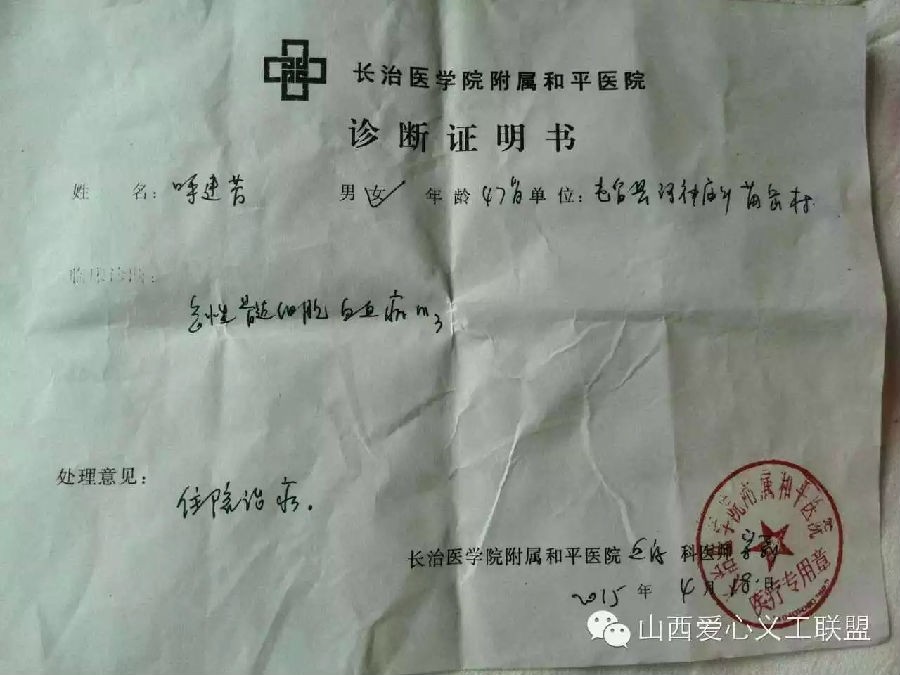 长治医学院附属和平医院
诊断证明书
姓 名：呼建芳 男 女 年龄 47岁 单位：屯留县 村
临床诊断：
急性髓细胞白血病 m3
处理意见：
住院治疗.
长治医学院附属和平医院 血液 科医师
2015 年 4 月 18 日
长治医学院附属和平医院
医疗专用章
山西爱心义工联盟